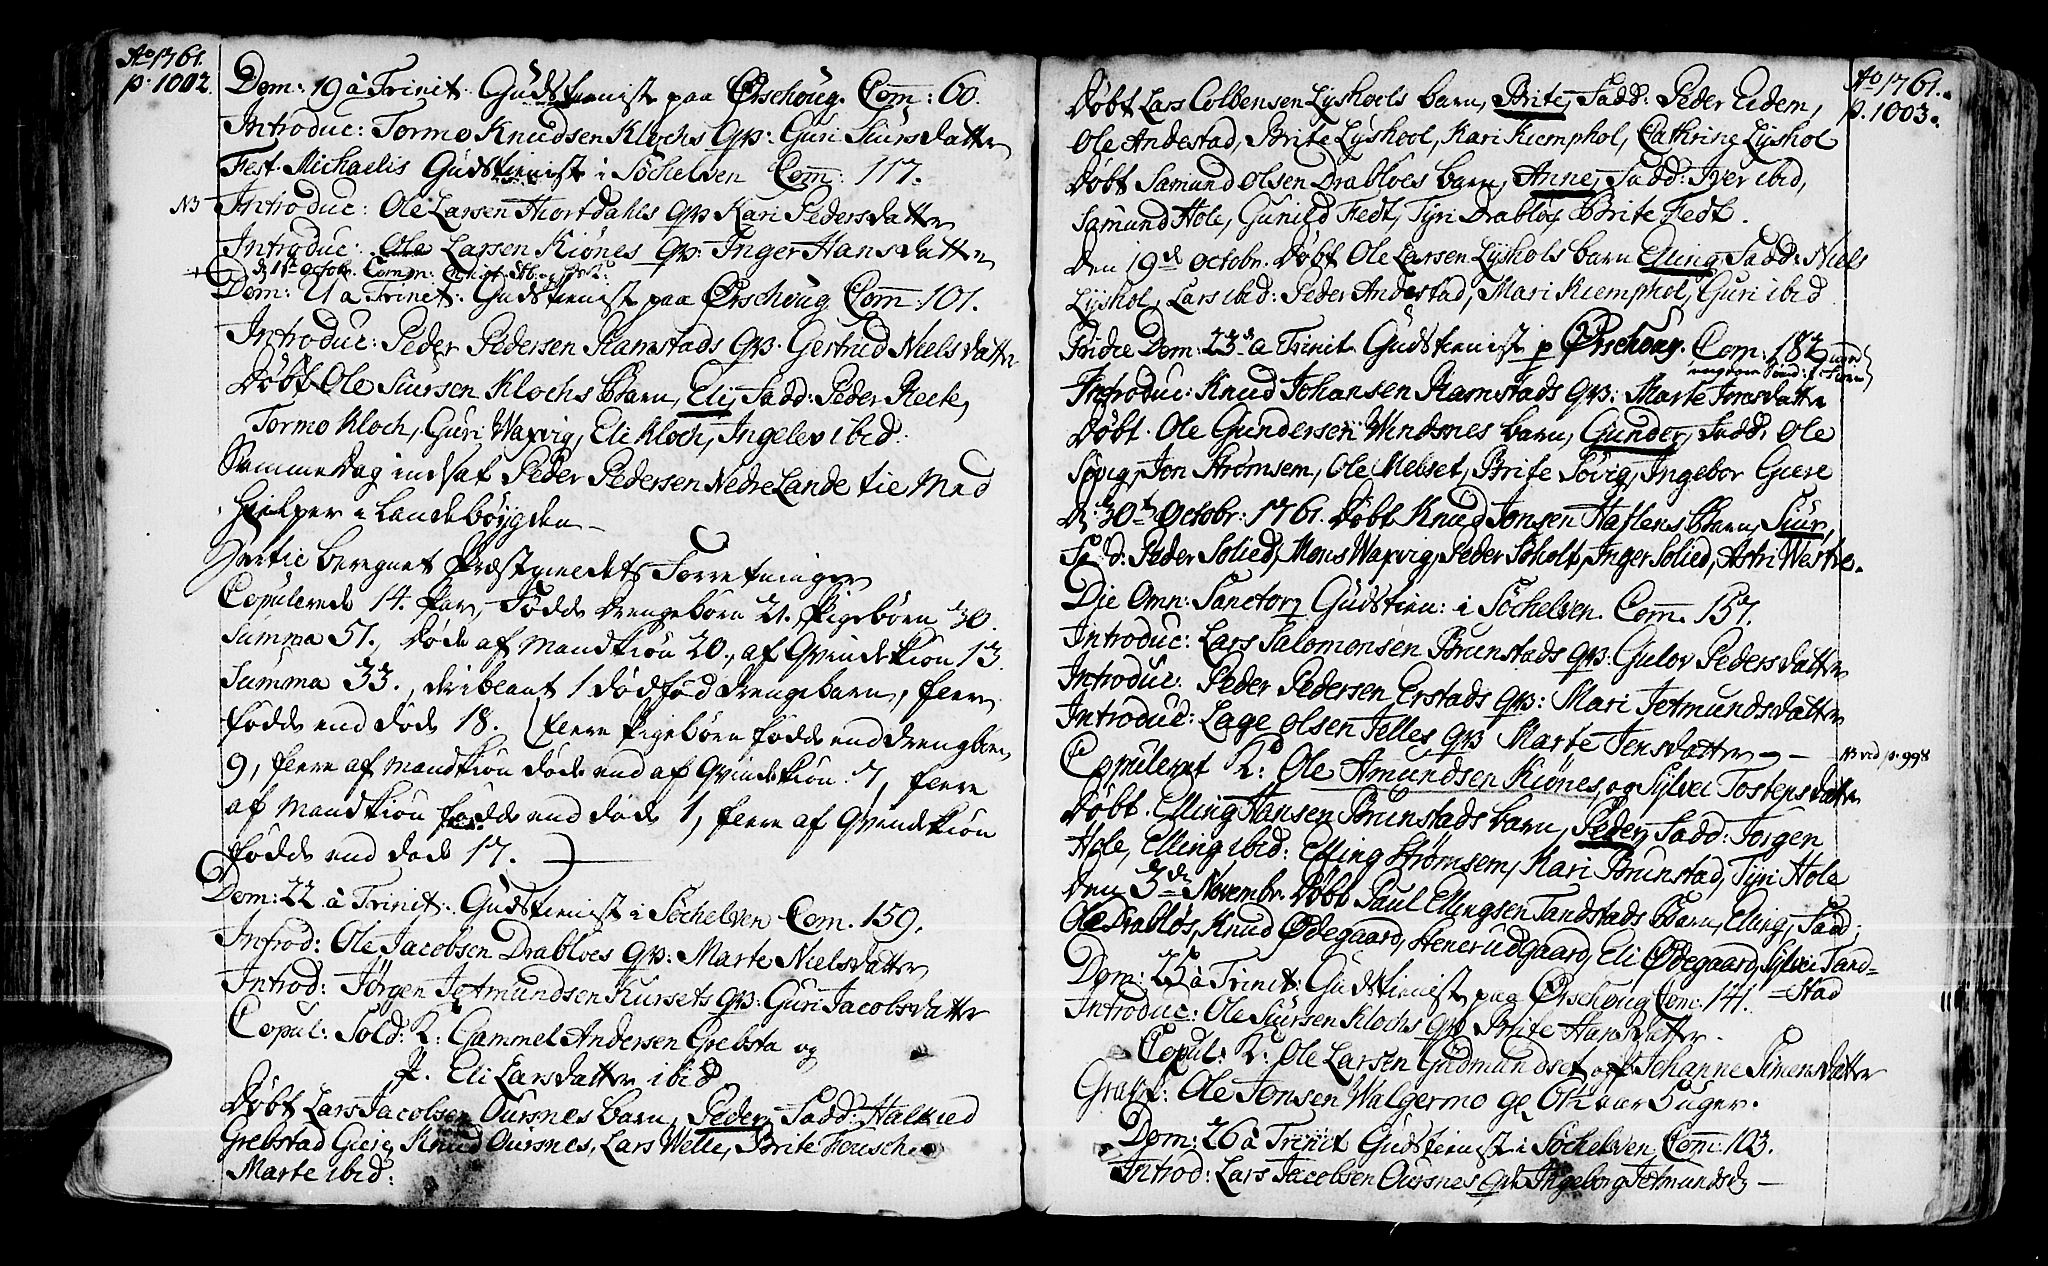 Ao 1761.
p. 1002.
Dom: 19 à Trinit. Gudstienist paa Ørschoug. Com: 60.
Introduc: Tormo Knudsen Klochs Qv: Guri Siursdatter
Fest. Michaelis Gudstienist i Söchelven Com: 117.
NB Introduc: Ole Larsen Hiortdahls Qv: Kari Pedersdatter
Introduc: Larsen Kiönes Qv: Inger Hansdatter
Dom: 21 à Trinit: Gudstienist paa Ørschoug Com: 101.
Introduc: Peder Pedersen Ramstads Qv: Gertrud Nielsdatter
Döbt Ole Siursen Klochs Barn, Eli, Fadd: Peder Rekte,
Tormo Kloch, Guri Waxvig, Eli Kloch, Ingelev ibid:
Samme Dag indsat Peder Pedersen Nedre Lande til Med
hielper i Landebøygden —
Hertil beregnet Præstgieldets Forretninger
Copulerede 14. Par, Fødde Drengebörn 21. Pigebörn 30.
Summa 51., Döde af Mandkiön 20., af Qvindekiön 13.
Summa 33., deriblant 1 dødfød drengebarn, fleere
fødde end døde 18. (fleere Pigebörn fødde end drengbörn
9, fleere af Mandkiön døde end af Qvindekiön 7, fleere
af Mandkiön fødde end døde 1, fleere af Qvindekiön
fødde end døde 17.
Dom: 22 à Trinit: Gudstienist i Söchelven Com. 159.
Introd: Ole Jacobsen Drabloes Qv: Marte Nielsdatter
Introd: Jørgen Jetmundsen Kursets Qv: Guri Jacobsdatter
Copul: Sold: K: Gammel Andersen Grebsta og
P. Eli Larsdatter ibid
Döbt Lars Jacobsen Oursnes barn, Peder, Fadd: Halkied
Grebstad Giere, Knud Oursnes, Lars Welle, Brite
Marte ibid:
Ao 1761.
p. 1003.
Döbt Lars Colbensen Lyshoels barn, Brite, Fadd: Peder Eidem,
Ole Andestad, Brite Lyshool, Kari Kiemphol, Cathrine Lyshol
Döbt Samund Olsen Drabloes barn, Anne, Fadd: Iver ibid,
Samund Hole, Gunild Fedt, Tyri Drabløs, Brite Fedt.
Den 19de Octobr. Döbt Ole Larsen Lyshols barn Elling, Fadd: Niels
Lyshol, Lars ibid: Peder Andestad, Mari Kiemphol, Guri ibid
Fridre Dom: 23 à Trinit Gudstienist p Ørschoug. Com: 182
Introduc: Knud Johansen Ramstads Qv: Marte Jonsdatter
Döbt. Ole Gundersen Windsnes barn, Gunder, Fadd: Ole
Søvig, Jon Strømsem, Ole Melset, Brite Søvig, Ingebor Giere
D: 30t Octobr: 1761. Döbt Knud Jonsen Haslens Barn, Siur,
Fadd: Peder Solied, Mons Waxvig, Peder Søholt, Inger Solied, Astri Westre.
Die Omn: Sanctor Gudstien: i Söchelven. Com. 157.
Introduc: Lars Salomonsen Brunstads Qv: Gulov Pedersdatter
Introduc: Peder Pedersen Erstads Qv: Mari Jetmundsdatter
Introduc: Lage Olsen Telles Qv Marte Jensdatter —
Copuleret K: Ole Amundsen Kiönes, og Sylvei Tostensdatter
NB ved p. 998
Döbt. Elling Hansen Brunstads barn, Peder, Fadd: Jorgen
Hole, Elling ibid: Elling Strømsem, Kari Brunstad, Tyri Hole
Den 3de Novembr. Döbt Paul Ellingsen Tandstads Barn, Elling, Fadd:
Ole Drabløs, Knud Ødegaard, Stener udgaard, Eli Ødegaard, Sylvei Tand=
=stad
Dom: 25 à Trinit: Gudstienist paa Ørschoug Com: 141.
Introduc: Ole Siursen Klochs Qv Brite Hansdatter.
Copul: K: Ole Larsen Gudmundset og P. Johanne Simensdatter
Gravf: Ole Jonsen Walgermo gl. 0½ aar 5 uger.
Dom: 26 à Trinit Gudstienist i Söchelven Com: 103.
Introd: Lars Jacobsen Oursnes Qv Ingeborg Jetmundsd —